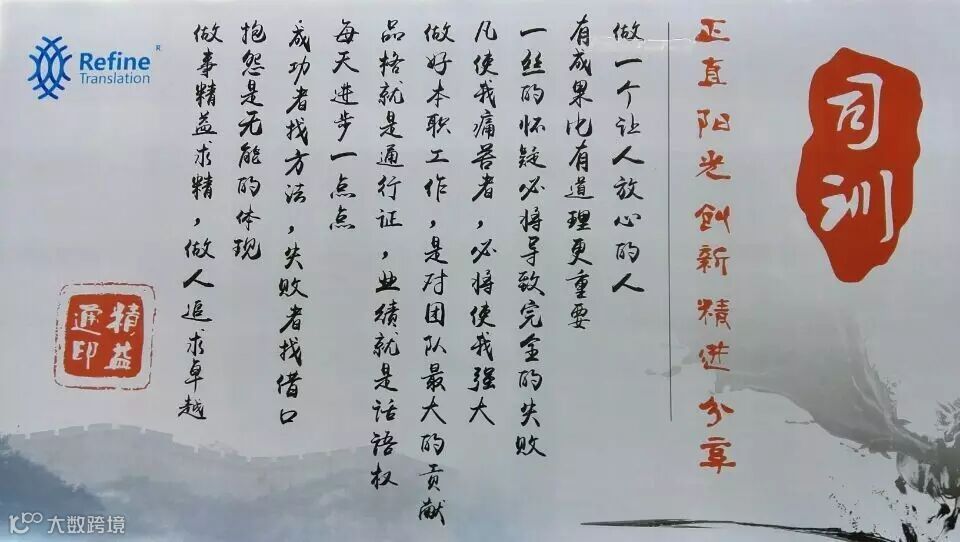 司训
正直 阳光 创新 精进 分享
做一个让人放心的人
有成果比有道理更重要
一丝的怀疑必将导致完全的失败
凡使我痛苦者，必将使我强大
做好本职工作，是对团队最大的贡献
品格就是通行证，业绩就是话语权
每天进步一点点
成功者找方法，失败者找借口
抱怨是无能的体现
做事精益求精，做人追求卓越
Refine®
Translation
精益
通印
大数跨境